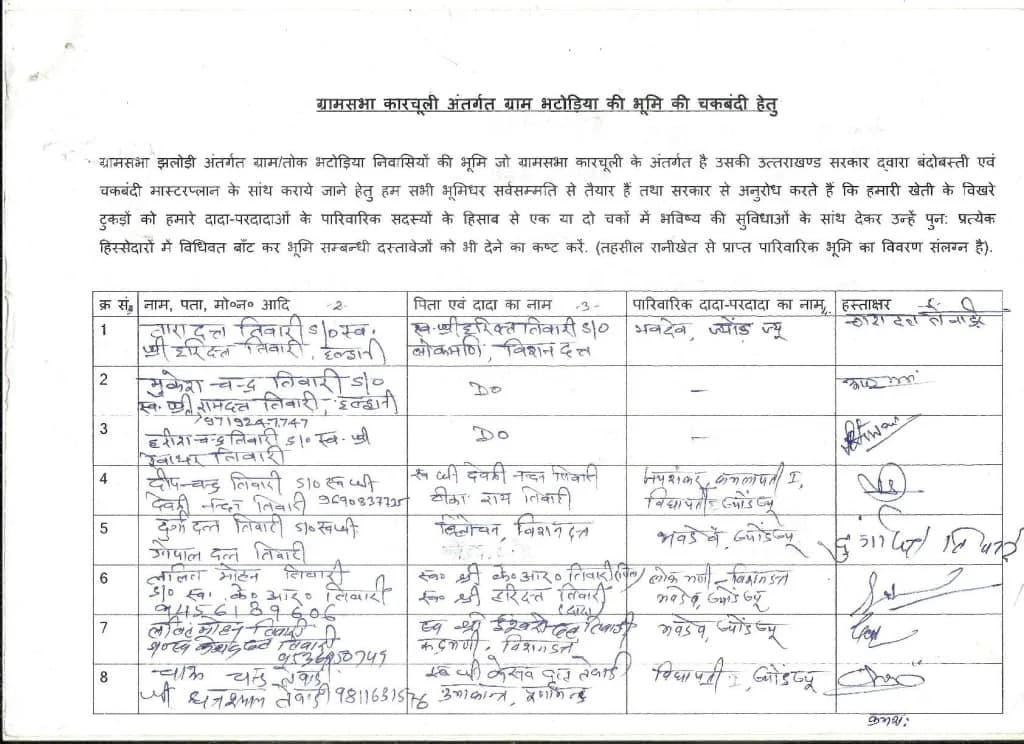 ग्रामसभा कारचूली अंतर्गत ग्राम भटोड़िया की भूमि की चकबंदी हेतु
ग्रामसभा झलोड़ी अंतर्गत ग्राम/तोक भटोड़िया निवासियों की भूमि जो ग्रामसभा कारचूली के अंतर्गत है उसकी उत्तराखण्ड सरकार द्वारा बंदोबस्ती एवं
चकबंदी मास्टरप्लान के सांथ कराये जाने हेतु हम सभी भूमिधर सर्वसम्मति से तैयार हैं तथा सरकार से अनुरोध करते हैं कि हमारी खेती के विखरे
टुकड़ों को हमारे दादा-परदादाओं के पारिवारिक सदस्यों के हिसाब से एक या दो चकों में भविष्य की सुविधाओं के सांथ देकर उन्हें पुन: प्रत्येक
हिस्सेदारों में विधिवत बाँट कर भूमि सम्बन्धी दस्तावेजों को भी देने का कष्ट करें. (तहसील रानीखेत से प्राप्त पारिवारिक भूमि का विवरण संलग्न है).
क्र सं. नाम, पता, मो०न० आदि -2- पिता एवं दादा का नाम -3- पारिवारिक दादा-परदादा का नाम हस्ताक्षर
1 तारा दत्त तिवारी S/o स्व. स्व. श्री हरिदत्त तिवारी S/o भवदेव, ज्योंड ज्यू
श्री हरिदत्त तिवारी, हल्द्वानी लोकमणि, विशन दत्त
2 मुकेश चन्द्र तिवारी S/o Do –
स्व. श्री रामदत्त तिवारी, हल्द्वानी
9719247747
3 हरीश चन्द्र तिवारी S/o स्व. श्री Do –
तिवारी
4 दीप चन्द्र तिवारी S/o स्व श्री स्व श्री देवकी नन्दन तिवारी कमलापती I,
देवकी नन्दन तिवारी टीका राम तिवारी विद्यापती, ज्योंडज्यू
5 दुर्गा दत्त तिवारी S/o स्व श्री त्रिलोचन, विशनदत्त भवदेव, ज्योंडज्यू
गोपाल दत्त तिवारी
6 ललित मोहन तिवारी स्व० श्री के० आर० तिवारी (पिता) लोकमणी - विशनदत्त
S/o स्व. के० आर० तिवारी स्व० श्री हरिदत्त तिवारी भवदेव, ज्योंडज्यू
9456139606 (दादा)
7 मोहन तिवारी स्व श्री तिवारी भवदेव, ज्योंडज्यू
विशनदत्त
8 चन्द्र तेवाड़ी स्व श्री केशव दत्त तेवाड़ी विद्यापती I, ज्योंडज्यू
श्री तेवाड़ी 9811631576 उमाकान्त,
क्रमश: